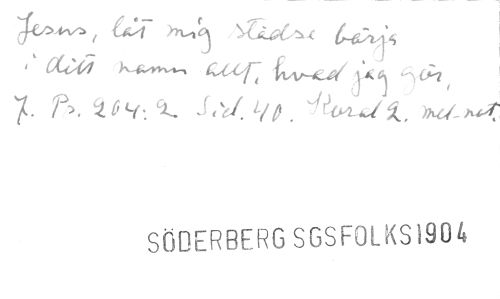 Jesus, låt mig städse börja
i ditt namn allt, hvad jag gör,
7. Ps. 204:2. Sid. 40. Koral 2. mel-not.
SÖDERBERG SGSFOLKS1904